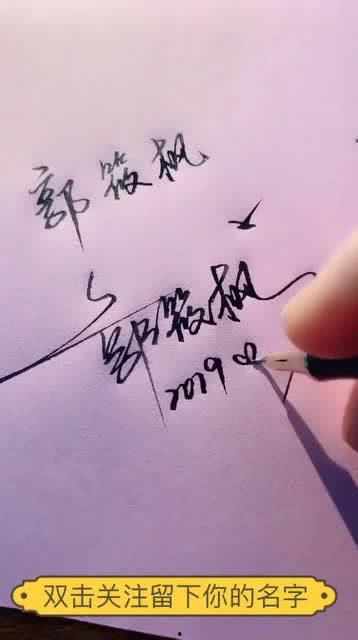 郭筱枫
郭筱枫
2019
双击关注留下你的名字